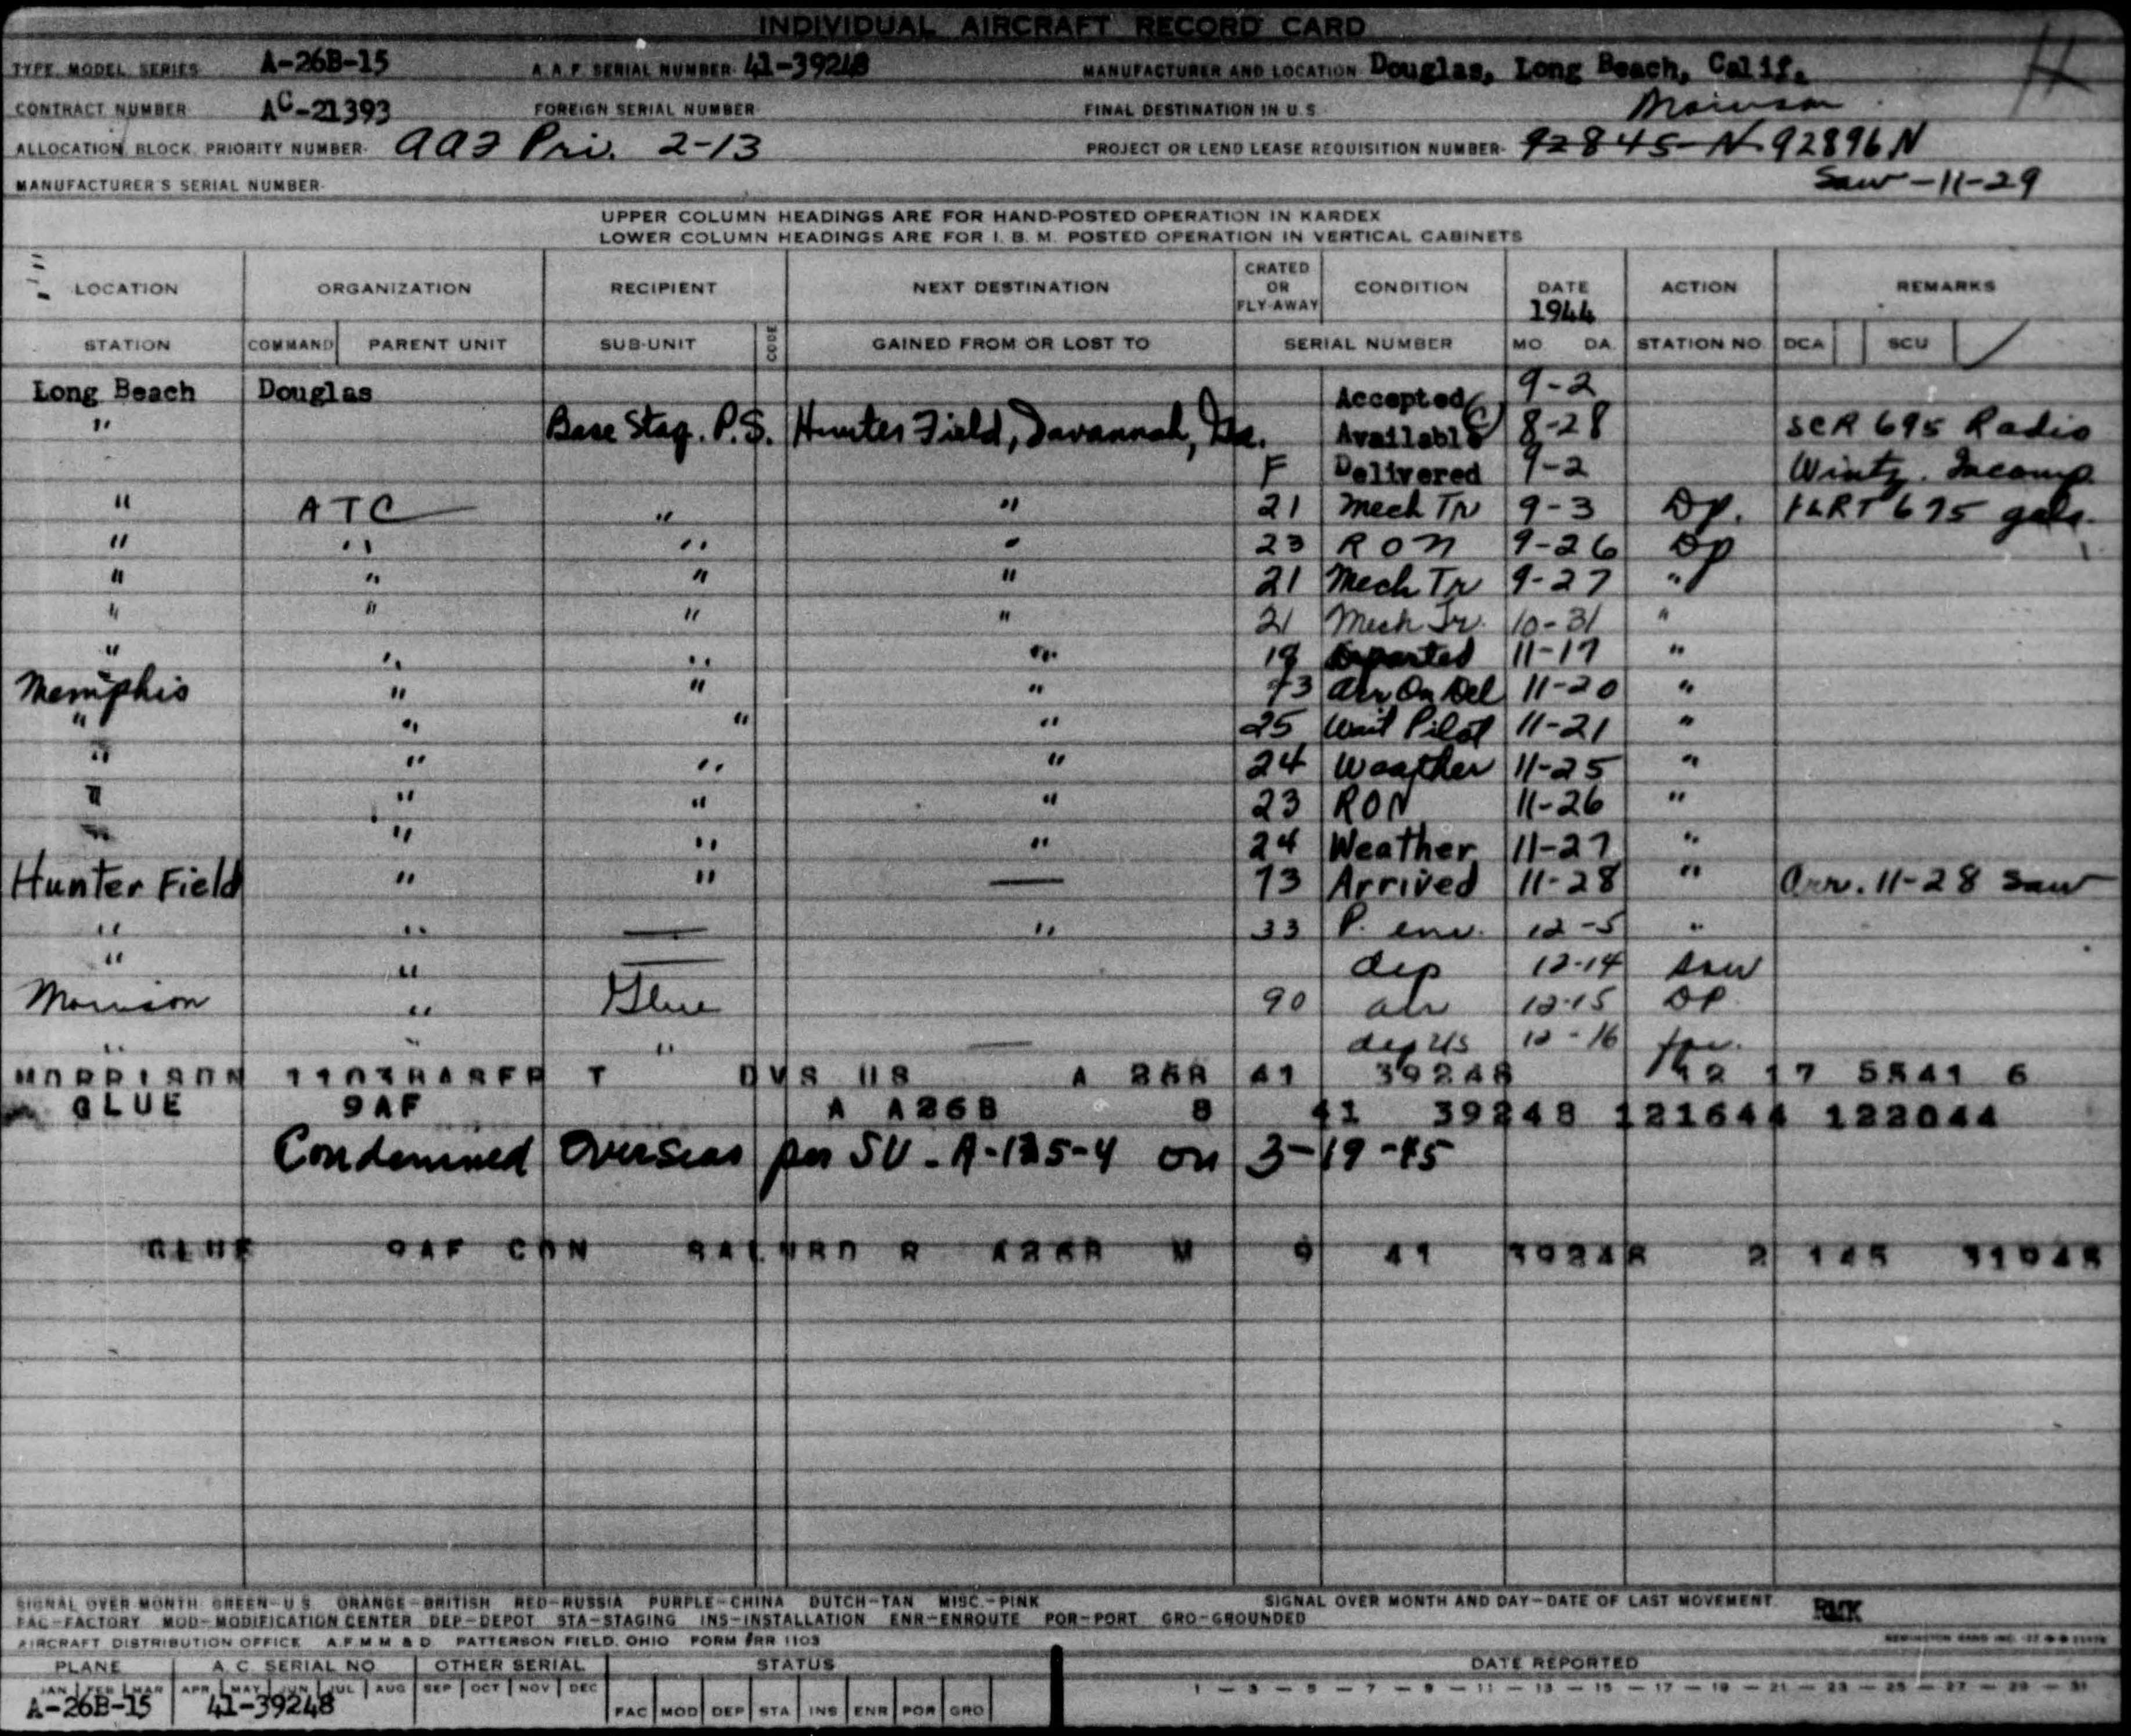 INDIVIDUAL AIRCRAFT RECORD CARD
TYPE MODEL SERIES A-26B-15 A.A.F. SERIAL NUMBER 41-39248 MANUFACTURER AND LOCATION Douglas, Long Beach, Calif.
CONTRACT NUMBER AC-21393 FOREIGN SERIAL NUMBER FINAL DESTINATION IN U.S. Morrison
ALLOCATION BLOCK PRIORITY NUMBER Pri. 2-13 PROJECT OR LEND LEASE REQUISITION NUMBER 92845-N 92896N
MANUFACTURER'S SERIAL NUMBER Saw-11-29
UPPER COLUMN HEADINGS ARE FOR HAND-POSTED OPERATION IN KARDEX
LOWER COLUMN HEADINGS ARE FOR I. B. M. POSTED OPERATION IN VERTICAL CABINETS
LOCATION ORGANIZATION RECIPIENT NEXT DESTINATION CRATED OR FLY-AWAY CONDITION DATE 1944 ACTION REMARKS
STATION COMMAND PARENT UNIT SUB-UNIT CODE GAINED FROM OR LOST TO SERIAL NUMBER MO DA. STATION NO. DCA SCU
Long Beach Douglas Accepted 9-2
" Base Stag. P.S. Hunter Field, Savannah, Ga. Available 8-28 SCR 695 Radio
F Delivered 9-2 Wintz. Incomp.
" ATC " " 21 Mech Tr 9-3 Dp. 675 gals.
" " " " 23 RON 9-26 Dp
" " " " 21 Mech Tr 9-27 "
" " " " 21 Mech Tr. 10-31 "
" " " " 19 Departed 11-17 "
Memphis " " " 73 Arr On Del 11-20 "
" " " " 25 Wait Pilot 11-21 "
" " " " 24 Weather 11-25 "
" " " " 23 RON 11-26 "
" " " " 24 Weather 11-27 "
Hunter Field " " — 73 Arrived 11-28 " Arr. 11-28 Saw
" " — " 33 P. env. 12-5 "
" " — dep 12-14 Saw
Morrison " Glue 90 arr 12-15 DP
" " " — dep US 12-16
MORRISON T DVS US A 26B 41 39248 17 5541 6
GLUE 9AF A A26B 8 41 39248 121644 122044
Condemned Overseas per SU-A-125-4 on 3-19-45
GLUE 9AF CON R A26B M 9 41 39248 2 145 31945
SIGNAL OVER MONTH GREEN-U.S. ORANGE-BRITISH RED-RUSSIA PURPLE-CHINA DUTCH-TAN MISC.-PINK SIGNAL OVER MONTH AND DAY-DATE OF LAST MOVEMENT. RMK
FAC-FACTORY MOD-MODIFICATION CENTER DEP-DEPOT STA-STAGING INS-INSTALLATION ENR-ENROUTE POR-PORT GRO-GROUNDED
AIRCRAFT DISTRIBUTION OFFICE A.F.M.M & D. PATTERSON FIELD, OHIO FORM #RR 1103
PLANE A.C. SERIAL NO. OTHER SERIAL STATUS DATE REPORTED
JAN FEB MAR APR MAY JUN JUL AUG SEP OCT NOV DEC 1 - 3 - 5 - 7 - 9 - 11 - 13 - 15 - 17 - 19 - 21 - 23 - 25 - 27 - 29 - 31
A-26B-15 41-39248 FAC MOD DEP STA INS ENR POR GRO